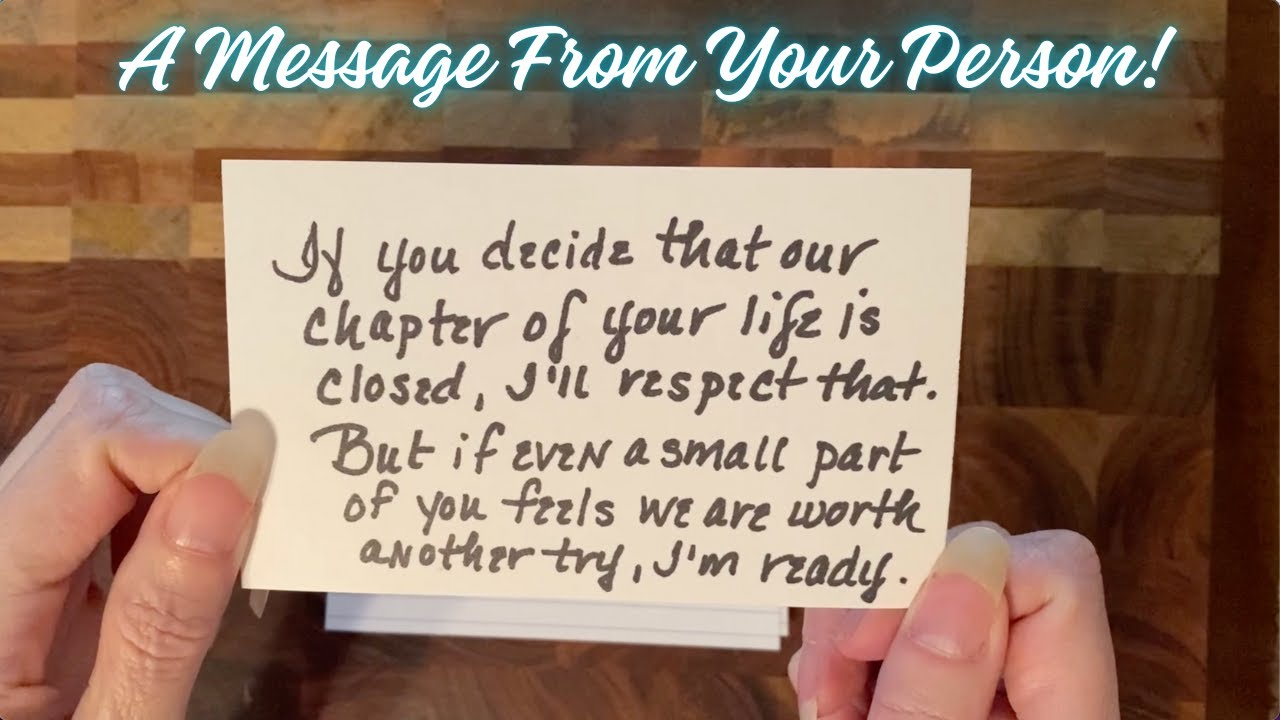 A Message From Your Person!
If you decide that our
chapter of your life is
closed, I'll respect that.
But if even a small part
of you feels we are worth
another try, I'm ready.